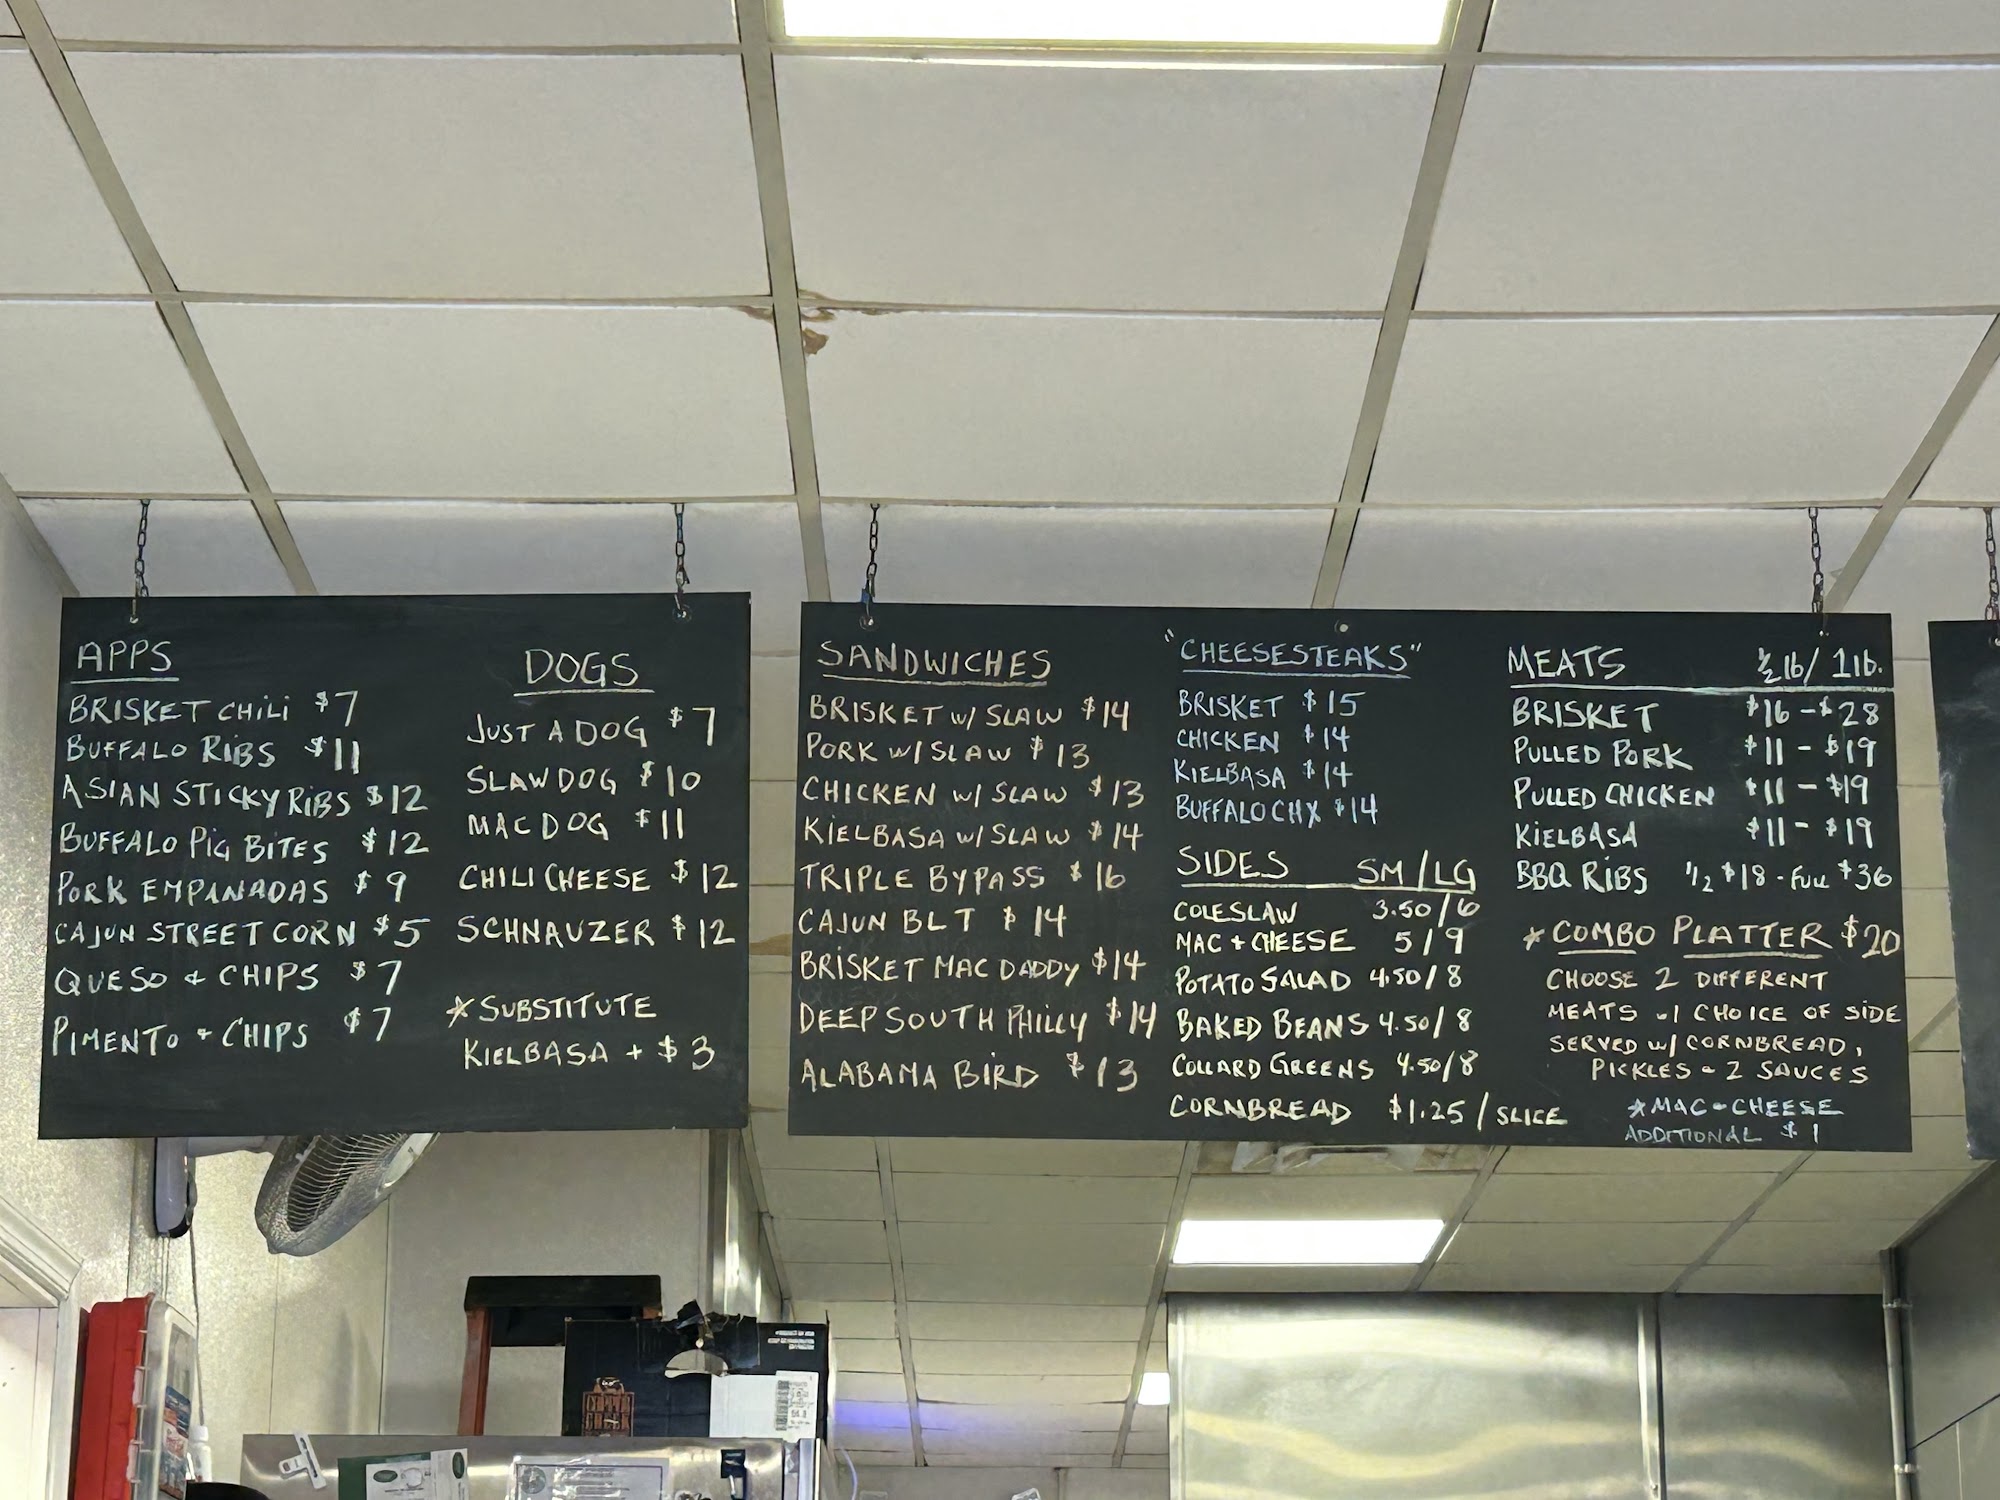 APPS
BRISKET CHILI $7
BUFFALO RIBS $11
ASIAN STICKY RIBS $12
BUFFALO PIG BITES $12
PORK EMPANADAS $9
CAJUN STREET CORN $5
QUESO + CHIPS $7
PIMENTO + CHIPS $7
DOGS
JUST A DOG $7
SLAW DOG $10
MAC DOG $11
CHILI CHEESE $12
SCHNAUZER $12
*SUBSTITUTE
KIELBASA + $3
SANDWICHES
BRISKET W/ SLAW $14
PORK W/ SLAW $13
CHICKEN W/ SLAW $13
KIELBASA W/ SLAW $14
TRIPLE BYPASS $16
CAJUN BLT $14
BRISKET MAC DADDY $14
DEEP SOUTH PHILLY $14
ALABAMA BIRD $13
"CHEESESTEAKS"
BRISKET $15
CHICKEN $14
KIELBASA $14
BUFFALO CHX $14
SIDES SM/LG
COLESLAW 3.50/6
MAC + CHEESE 5/9
POTATO SALAD 4.50/8
BAKED BEANS 4.50/8
COLLARD GREENS 4.50/8
CORNBREAD $1.25/SLICE
MEATS ½ lb/ 1 lb.
BRISKET $16 - $28
PULLED PORK $11 - $19
PULLED CHICKEN $11 - $19
KIELBASA $11 - $19
BBQ RIBS 1/2 $18 - FULL $36
*COMBO PLATTER $20
CHOOSE 2 DIFFERENT
MEATS W/ CHOICE OF SIDE
SERVED W/ CORNBREAD,
PICKLES + 2 SAUCES
*MAC + CHEESE
ADDITIONAL $1